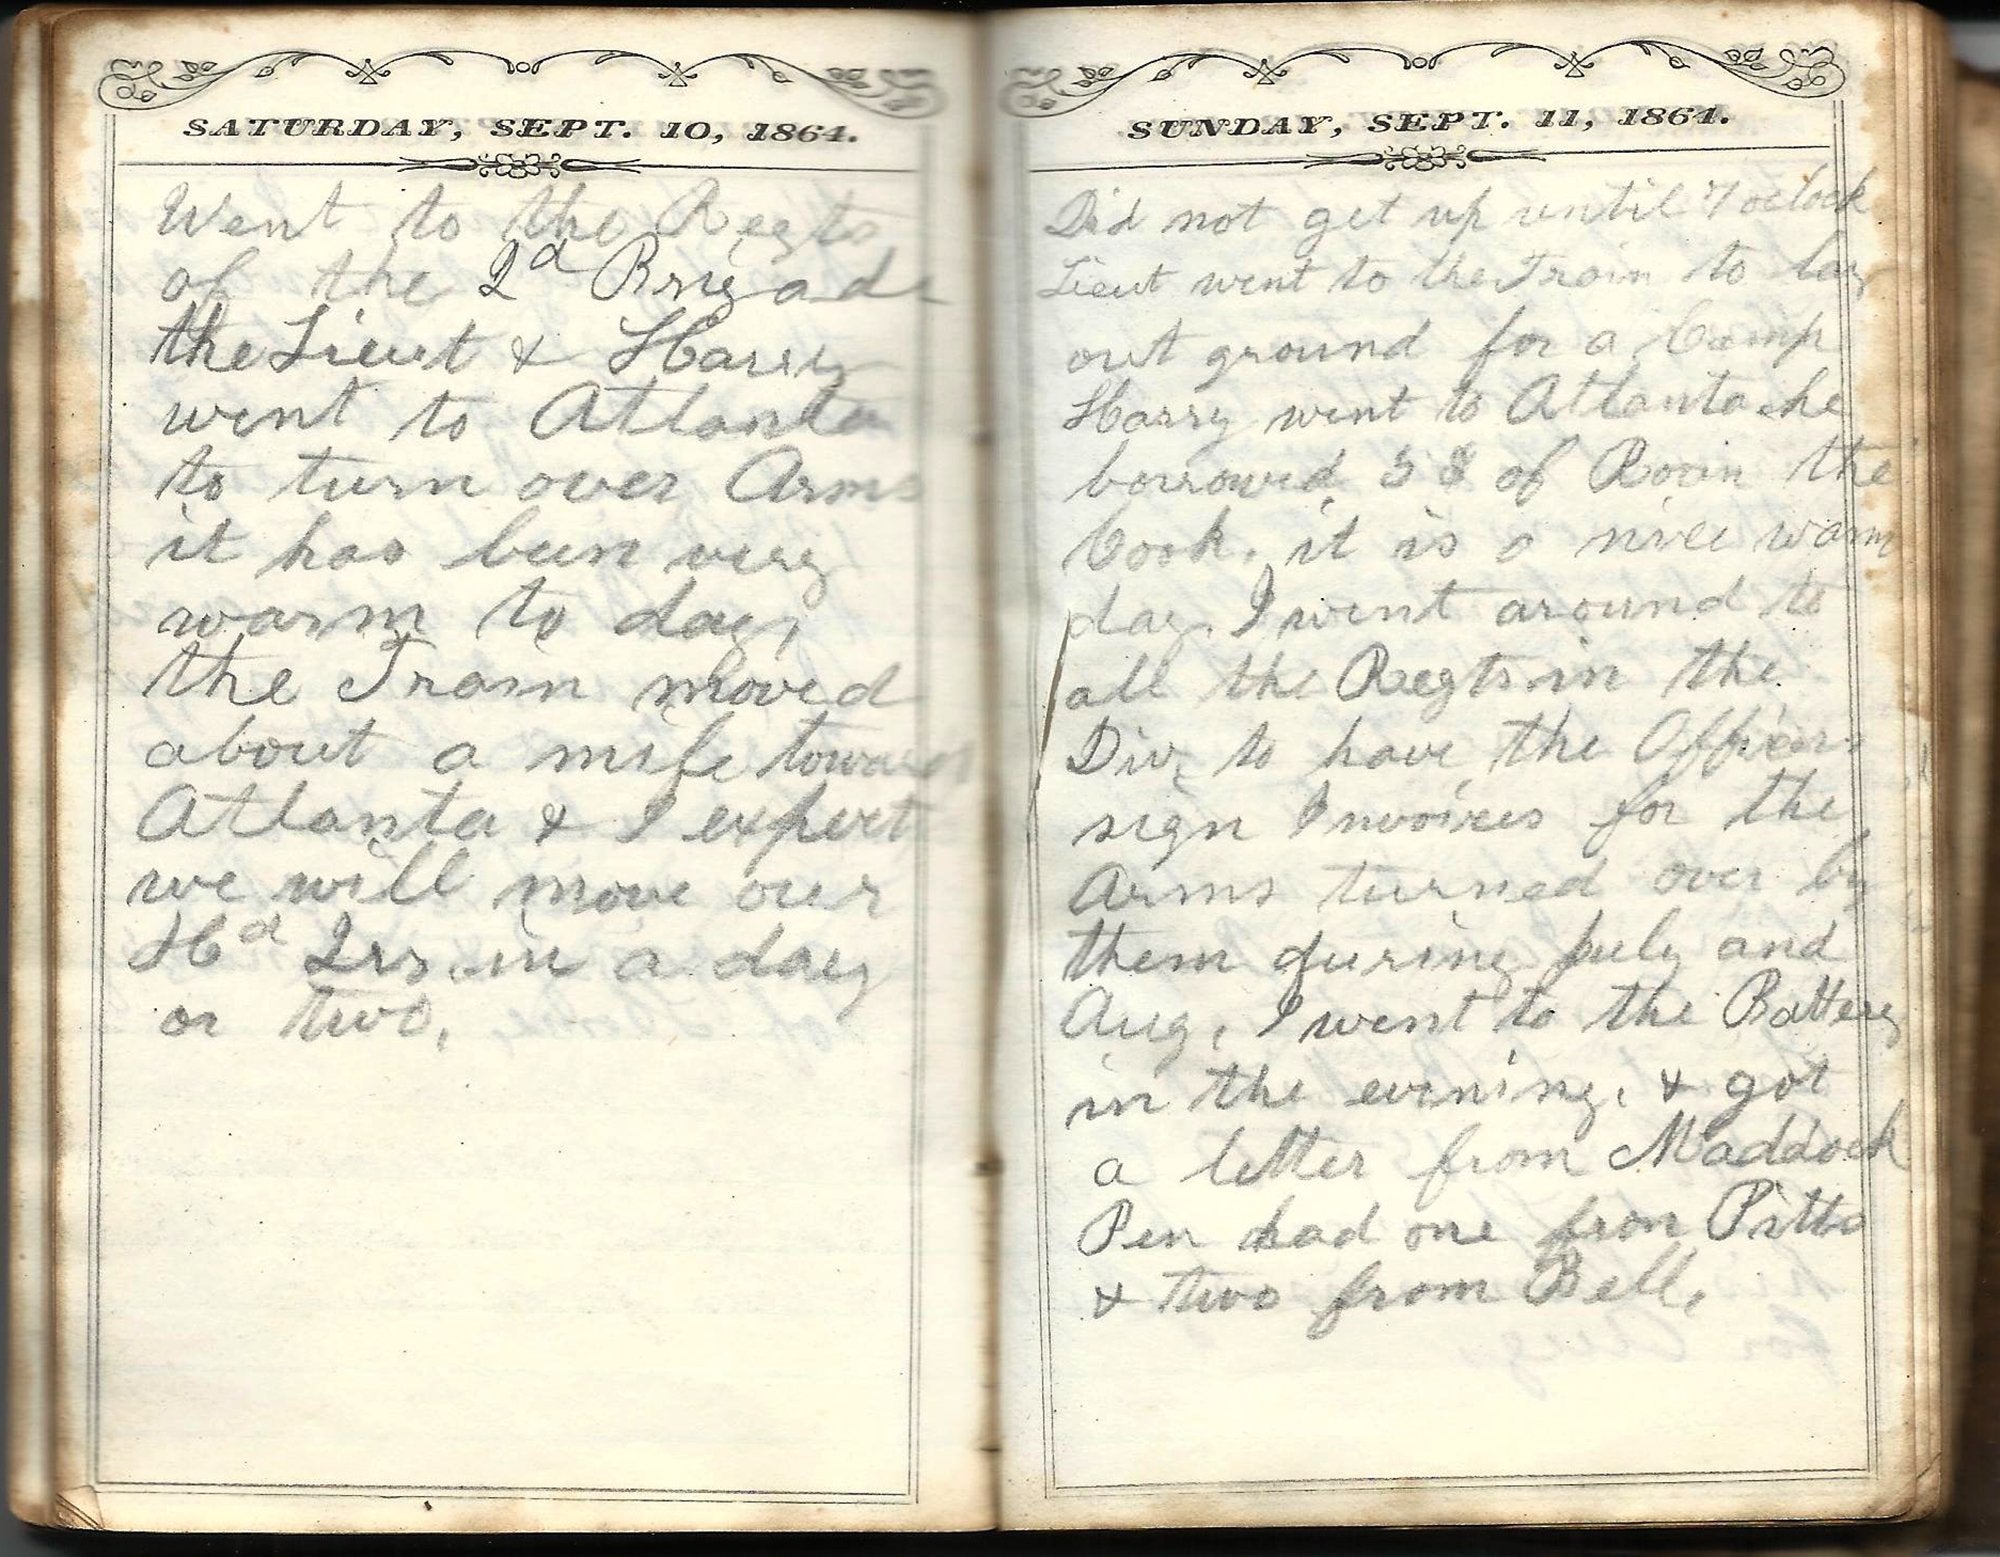 SATURDAY, SEPT. 10, 1864.
Went to the Regts
of the 2d Brigade
the Lieut & Harry
went to Atlanta
to turn over Arms
it has been very
warm to day,
the Train moved
about a mile toward
Atlanta & I expect
we will move our
Hd Qrs. in a day
or two.
SUNDAY, SEPT. 11, 1864.
Did not get up until 7 oclock
Lieut went to the Train to lay
out ground for a Camp
Harry went to Atlanta he
borrowed 5 $ of the
Cook. it is a nice warm
day. I went around to
all the Regts in the
Div. to have the Officers
sign Invoices for the
Arms turned over by
them during July and
Aug. I went to the Battery
in the evening. & got
a letter from Maddock
Pen had one from Pitts
& two from Bell.